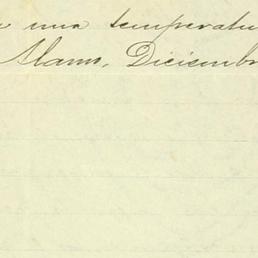 una temperatu
Alamo, Diciembr